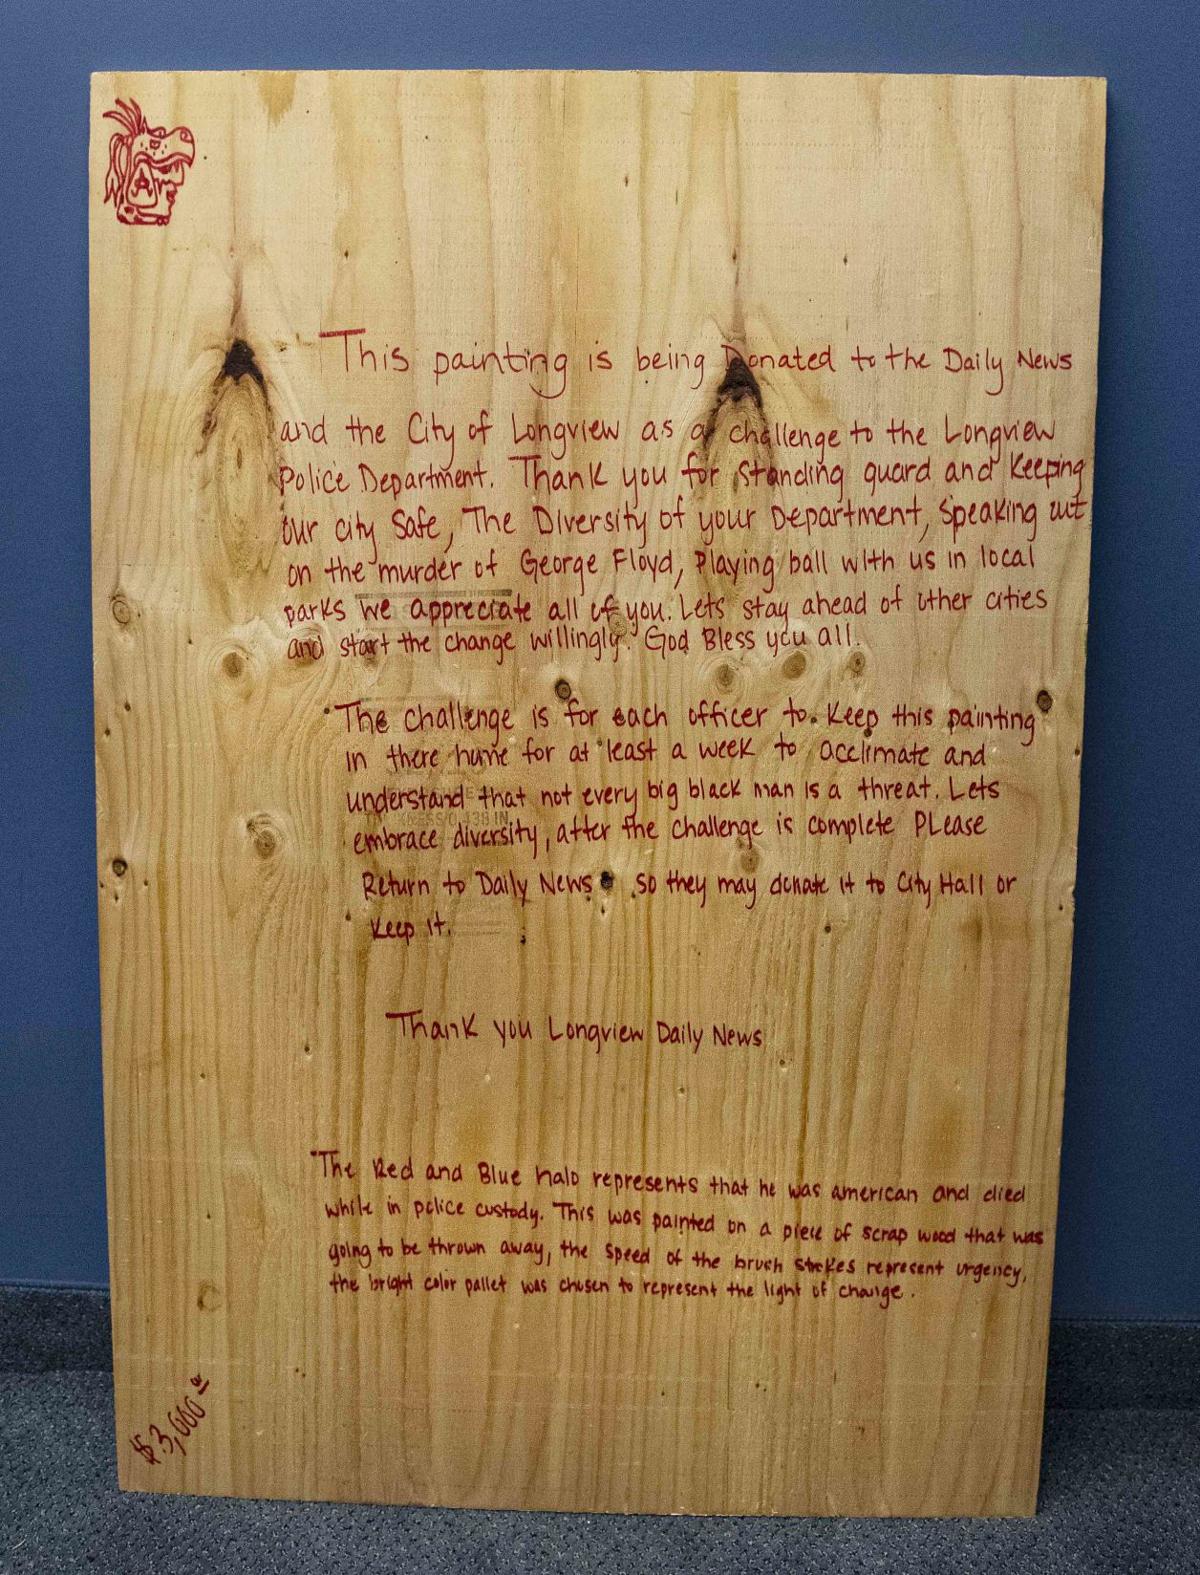 This painting is being Donated to the Daily News
and the City of Longview as a challenge to the Longview
Police Department. Thank you for standing guard and Keeping
our city Safe, The Diversity of your Department, Speaking out
on the murder of George Floyd, Playing ball with us in local
parks we appreciate all of you. Lets stay ahead of other cities
and start the change willingly. God Bless you all.
The challenge is for each officer to. Keep this painting
in there home for at least a week to acclimate and
understand that not every big black man is a threat. Lets
embrace diversity, after the challenge is complete PLease
Return to Daily News so they may donate it to City Hall or
Keep it.
Thank you Longview Daily News
The Red and Blue halo represents that he was american and died
while in police custody. This was painted on a piece of scrap wood that was
going to be thrown away, the speed of the brush strokes represent urgency,
the bright color pallet was chosen to represent the light of change.
$3,000